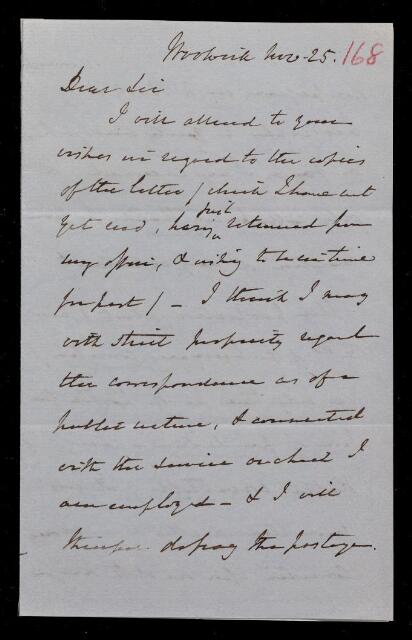 Woolwich Nov. 25. 168
Dear Sir
I will attend to your
wishes in regard to the copies
of the letter / which I have not
yet read, having just returned from
my office, & wishing to be in time
for post / — I think I may
with strict propriety regard
the correspondence as of a
public nature, & connected
with the service on which I
am employed — & I will
therefore defray the postage.